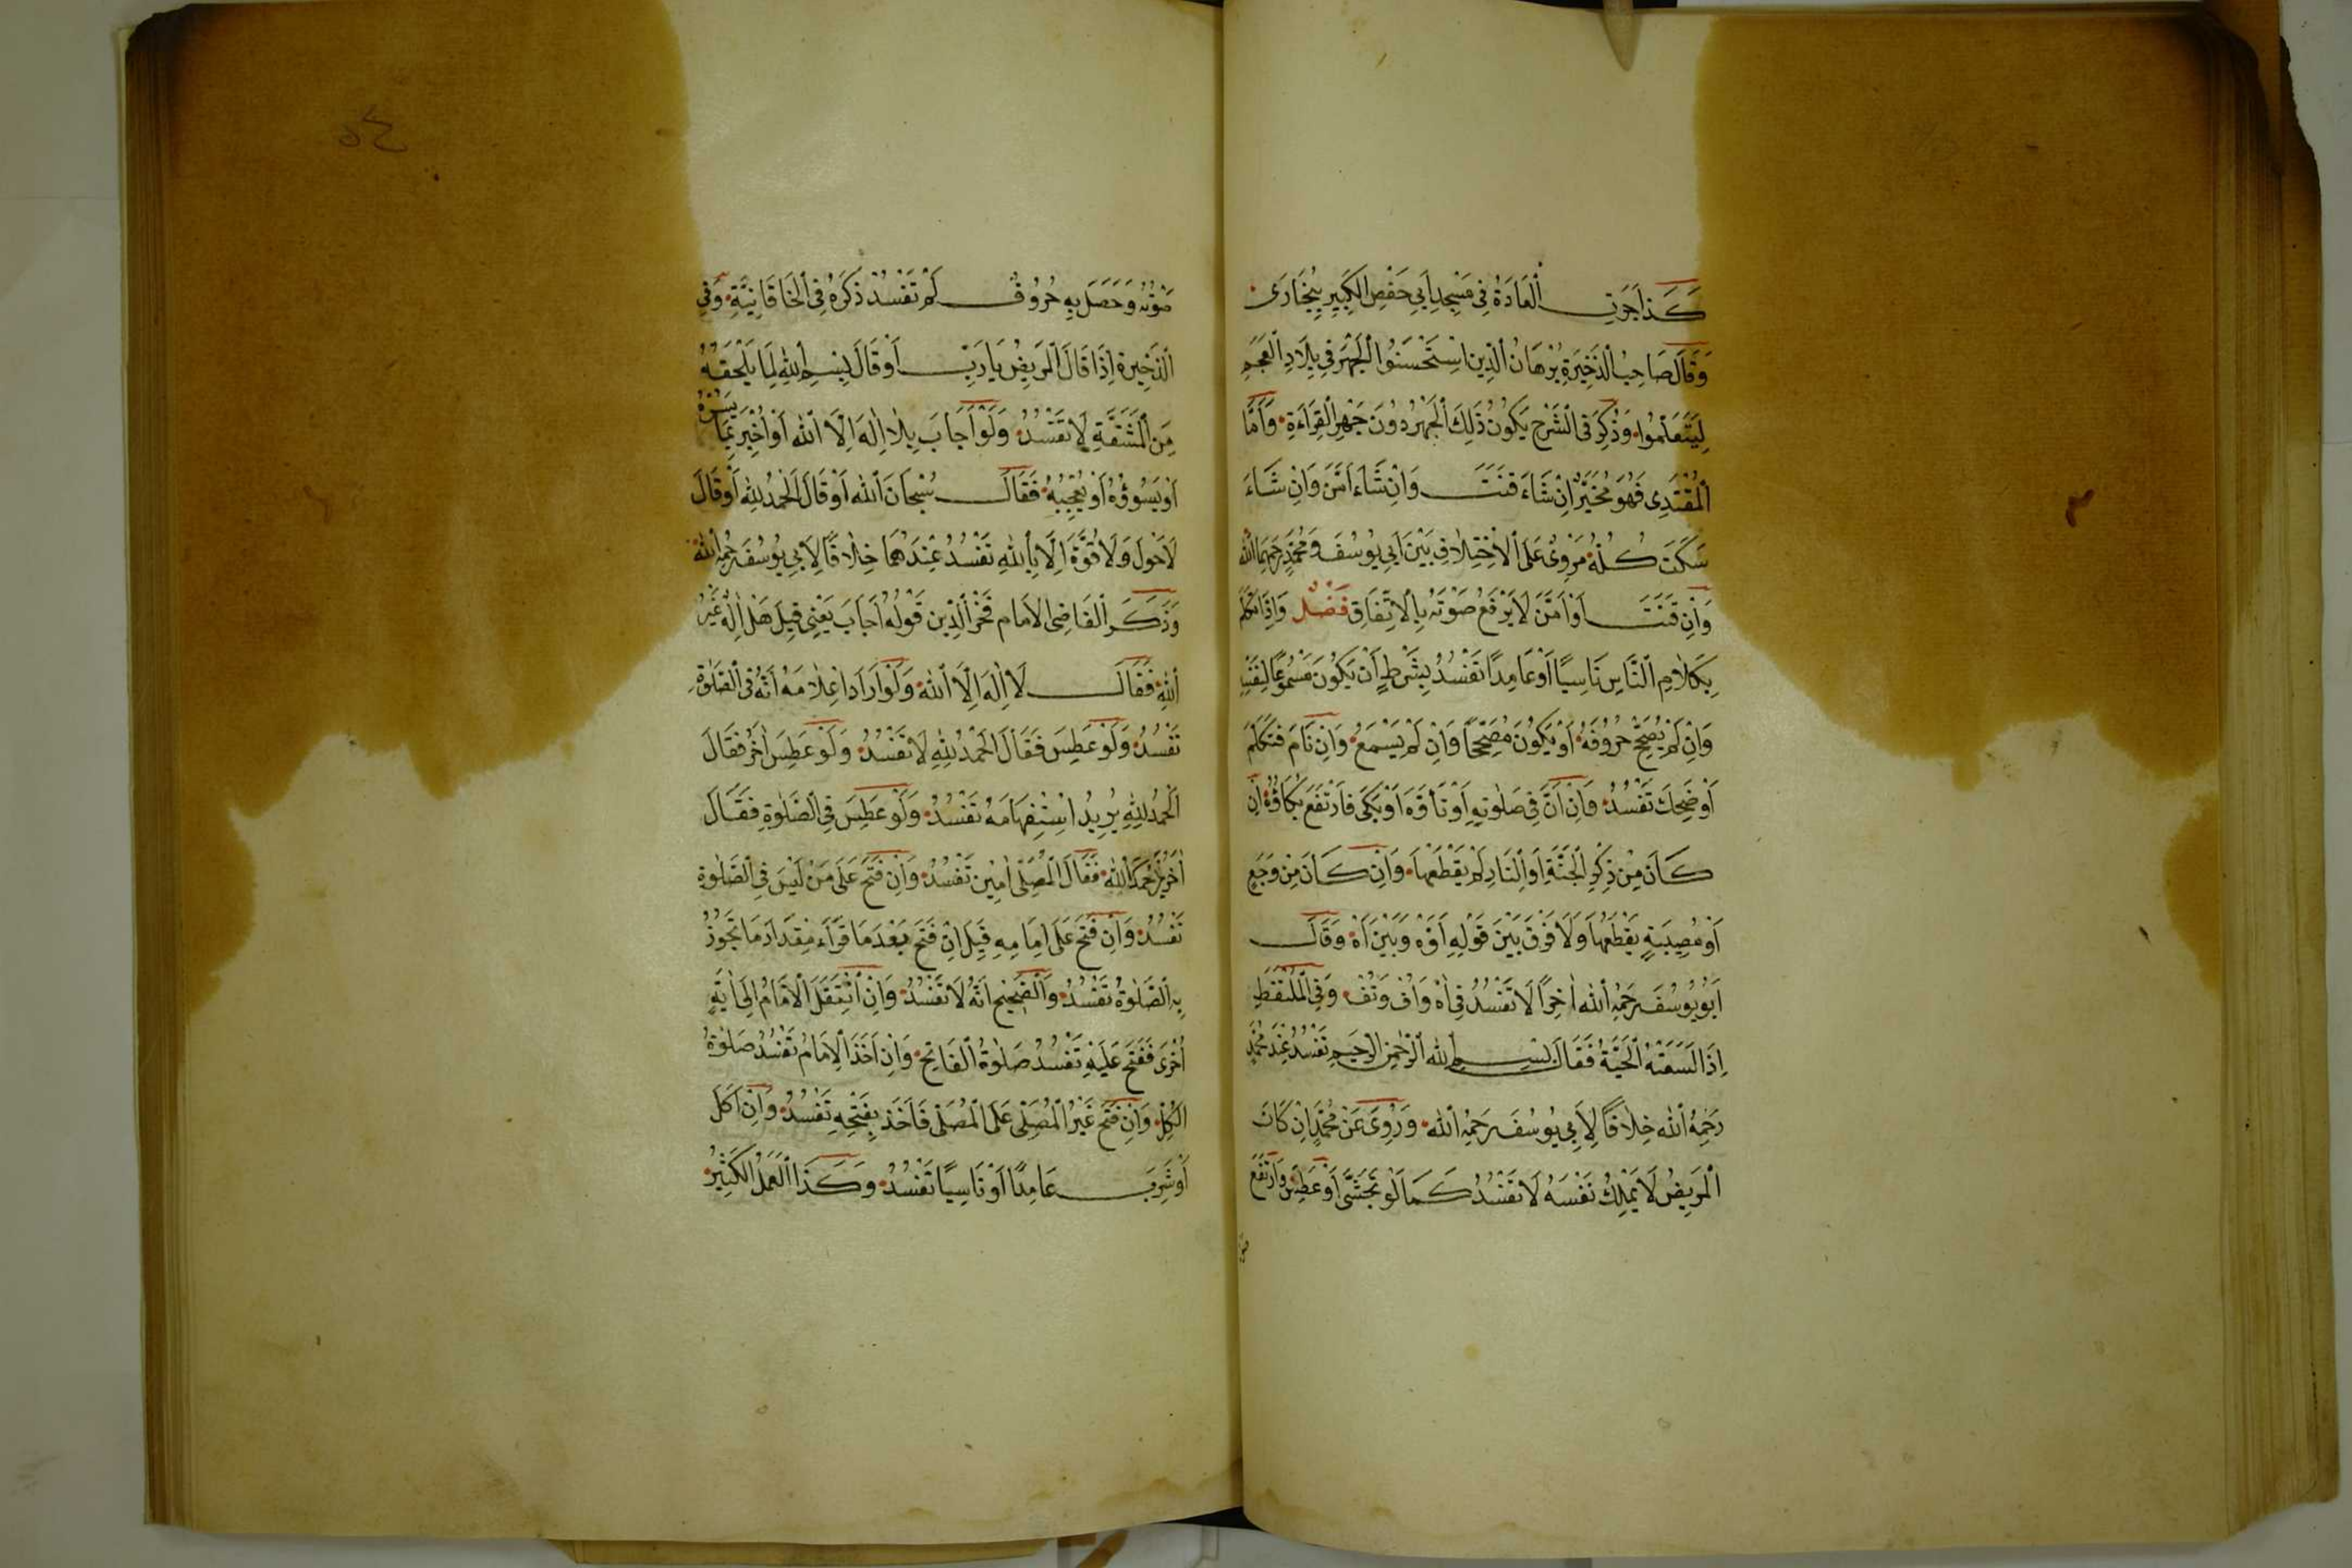 كَذَا جَرَتِ الْعَادَةُ فِي مَسْجِدِ اَبِي حَفْصِ الْكَبِيرِ بِبُخَارَى
وَقَالَ صَاحِبُ الذَّخِيرَةِ بُرْهَانُ الدِّينِ اسْتَحْسَنُوا الْجَهْرَ فِي بِلَادِ الْعَجَمِ
لِيَتَعَلَّمُوا وَذُكِرَ فِي الشَّرْحِ يَكُونُ ذَلِكَ الْجَهْرُ دُونَ جَهْرِ الْقِرَاءَةِ وَاَمَّا
الْمُقْتَدِى فَهُوَ مُخَيَّرٌ اِنْ شَاءَ قَنَتَ وَاِنْ شَاءَ اَمَّنَ وَاِنْ شَاءَ
سَكَتَ كُلُّهُ مَرْوِىٌّ عَلَى الْاِخْتِلَافِ بَيْنَ اَبِي يُوسُفَ وَمُحَمَّدٍ رَحِمَهُمَا اللّٰهُ
وَاِنْ قَنَتَ اَوْ اَمَّنَ لَا يَرْفَعُ صَوْتَهُ بِالْاِتِّفَاقِ فَصْلٌ وَاِذَا تَكَلَّمَ
بِكَلَامِ النَّاسِ نَاسِيًا اَوْ عَامِدًا تَفْسُدُ بِشَرْطِ اَنْ يَكُونَ مَسْمُوعًا لِنَفْسِهِ
وَاِنْ لَمْ يُصَحِّحْ حُرُوفَهُ اَوْ يَكُونَ مُصَحِّحًا وَاِنْ لَمْ يَسْمَعْ وَاِنْ نَامَ فَتَكَلَّمَ
اَوْ ضَحِكَ تَفْسُدُ وَاِنْ اَنَّ فِي صَلٰوتِهِ اَوْ تَأَوَّهَ اَوْ بَكَى فَارْتَفَعَ بُكَاؤُهُ اِنْ
كَانَ مِنْ ذِكْرِ الْجَنَّةِ اَوِ النَّارِ لَمْ يَقْطَعْهَا وَاِنْ كَانَ مِنْ وَجَعٍ
اَوْ مُصِيبَةٍ يَقْطَعُهَا وَلَا فَرْقَ بَيْنَ قَوْلِهِ اَوْهْ وَبَيْنَ اٰهْ وَقَالَ
اَبُو يُوسُفَ رَحِمَهُ اللّٰه اٰخِرًا لَا تَفْسُدُ فِي اٰهْ وَاُفْ وَتُفْ وَفِي الْمُلْتَقَطِ
اِذَا لَسَعَتْهُ الْحَيَّةُ فَقَالَ بِسْمِ اللّٰهِ الرَّحْمٰنِ الرَّحِيمِ تَفْسُدُ عِنْدَ مُحَمَّدٍ
رَحِمَهُ اللّٰه خِلَافًا لِاَبِي يُوسُفَ رَحِمَهُ اللّٰه وَرُوِىَ عَنْ مُحَمَّدٍ اِنْ كَانَ
الْمَرِيضُ لَا يَمْلِكُ نَفْسَهُ لَا تَفْسُدُ كَمَا لَوْ تَجَشَّى اَوْ عَطَسَ وَارْتَفَعَ
صَوْتُهُ وَحَصَلَ بِهِ حُرُوفٌ لَمْ تَفْسُدْ ذَكَرَهُ فِي الْخَاقَانِيَّةِ وَفِي
الذَّخِيرَةِ اِذَا قَالَ الْمَرِيضُ يَا رَبِّ اَوْ قَالَ بِسْمِ اللّٰهِ لِمَا يَلْحَقُهُ
مِنَ الْمَشَقَّةِ لَا تَفْسُدُ وَلَوْ اَجَابَ بِلَا اِلٰهَ اِلَّا اللّٰه اَوْ اُخْبِرَ بِمَا يَسُرُّهُ
اَوْ يَسُوؤُهُ اَوْ يُعْجِبُهُ فَقَالَ سُبْحَانَ اللّٰه اَوْ قَالَ الْحَمْدُ لِلّٰهِ اَوْ قَالَ
لَا حَوْلَ وَلَا قُوَّةَ اِلَّا بِاللّٰهِ تَفْسُدُ عِنْدَهُمَا خِلَافًا لِاَبِي يُوسُفَ رَحِمَهُ اللّٰه
وَذَكَرَ الْقَاضِى الْاِمَام فَخْرُ الدِّين قَوْلُهُ اَجَابَ يَعْنِى قِيلَ هَلْ اِلٰهٌ غَيْرُ
اللّٰهِ فَقَالَ لَا اِلٰهَ اِلَّا اللّٰهُ وَلَوْ اَرَادَ اِعْلَامَهُ اَنَّهُ فِي الصَّلٰوةِ
تَفْسُدُ وَلَوْ عَطِسَ فَقَالَ الْحَمْدُ لِلّٰهِ لَا تَفْسُدُ وَلَوْ عَطِسَ اٰخَرُ فَقَالَ
الْحَمْدُ لِلّٰهِ يُرِيدُ اسْتِفْهَامَهُ تَفْسُدُ وَلَوْ عَطِسَ فِي الصَّلٰوةِ فَقَالَ
اٰخَرُ يَرْحَمُكَ اللّٰه فَقَالَ الْمُصَلِّى اٰمِينَ تَفْسُدُ وَاِنْ فَتَحَ عَلَى مَنْ لَيْسَ فِي الصَّلٰوةِ
تَفْسُدُ وَاِنْ فَتَحَ عَلَى اِمَامِهِ قِيلَ اِنْ فَتَحَ بَعْدَ مَا قَرَاَ مِقْدَارَ مَا تَجُوزُ
بِهِ الصَّلٰوةُ تَفْسُدُ وَالصَّحِيحُ اَنَّهُ لَا تَفْسُدُ وَاِنِ انْتَقَلَ الْاِمَامُ اِلَى اٰيَةٍ
اُخْرَى فَفَتَحَ عَلَيْهِ تَفْسُدُ صَلٰوةُ الْفَاتِحِ وَاِنْ اَخَذَ الْاِمَامُ تَفْسُدُ صَلٰوةُ
الْكُلِّ وَاِنْ فَتَحَ غَيْرُ الْمُصَلِّى عَلَى الْمُصَلِّى فَاَخَذَ بِفَتْحِهِ تَفْسُدُ وَاِنْ اَكَلَ
اَوْ شَرِبَ عَامِدًا اَوْ نَاسِيًا تَفْسُدُ وَكَذَا الْعَمَلُ الْكَثِيرُ